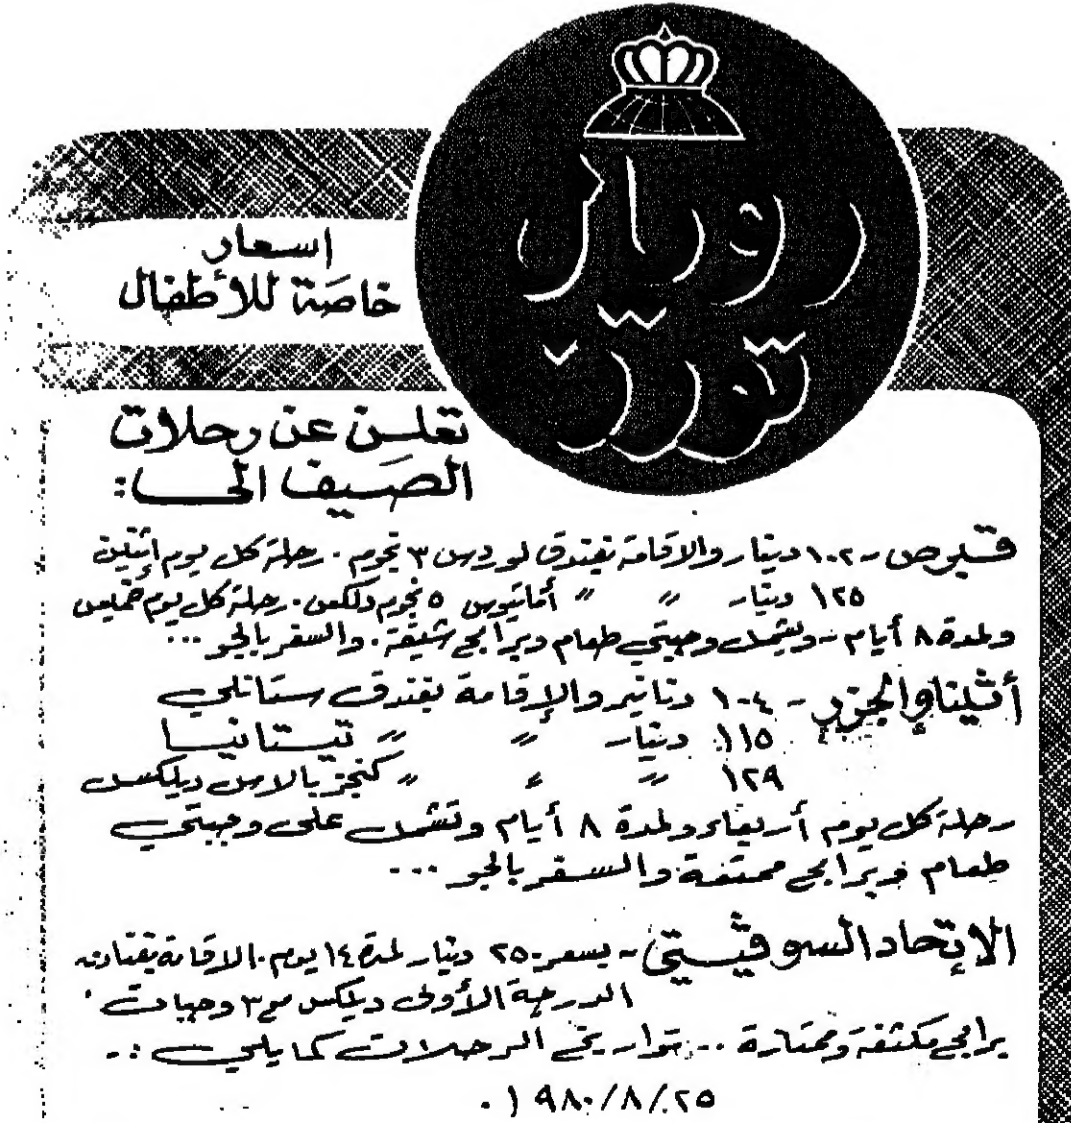 رويال
تورز
اسعار
خاصة للأطفال
تعلن عن رحلات
الصيف الى:
قبرص - ١٠٢ دينار والاقامة بفندق لوردس ٣ نجوم . رحلة كل يوم إثنين
١٢٥ دينار " " أماثيوس ٥ نجوم دلكس . رحلة كل يوم خميس
ولمدة ٨ أيام - ويشمل وجبتي طعام وبرامج شيقة . والسفر بالجو ...
أثينا والجزر - ١٠٤ دنانير والإقامة بفندق ستانلي
١١٥ دينار " " تيتانيا
١٢٩ " " " كنجز بالاس ديلكس
رحلة كل يوم أربعاء ولمدة ٨ أيام وتشمل على وجبتي
طعام وبرامج ممتعة والسفر بالجو ...
الإتحاد السوفيتي - بسعر ٢٥٠ دينار لمدة ١٤ يوم . الاقامة بفنادق
الدرجة الأولى ديلكس مع ٣ وجبات .
برامج مكثفة وممتازة .. تواريخ الرحلات كما يلي :-
١٩٨٠/٨/٢٥ .